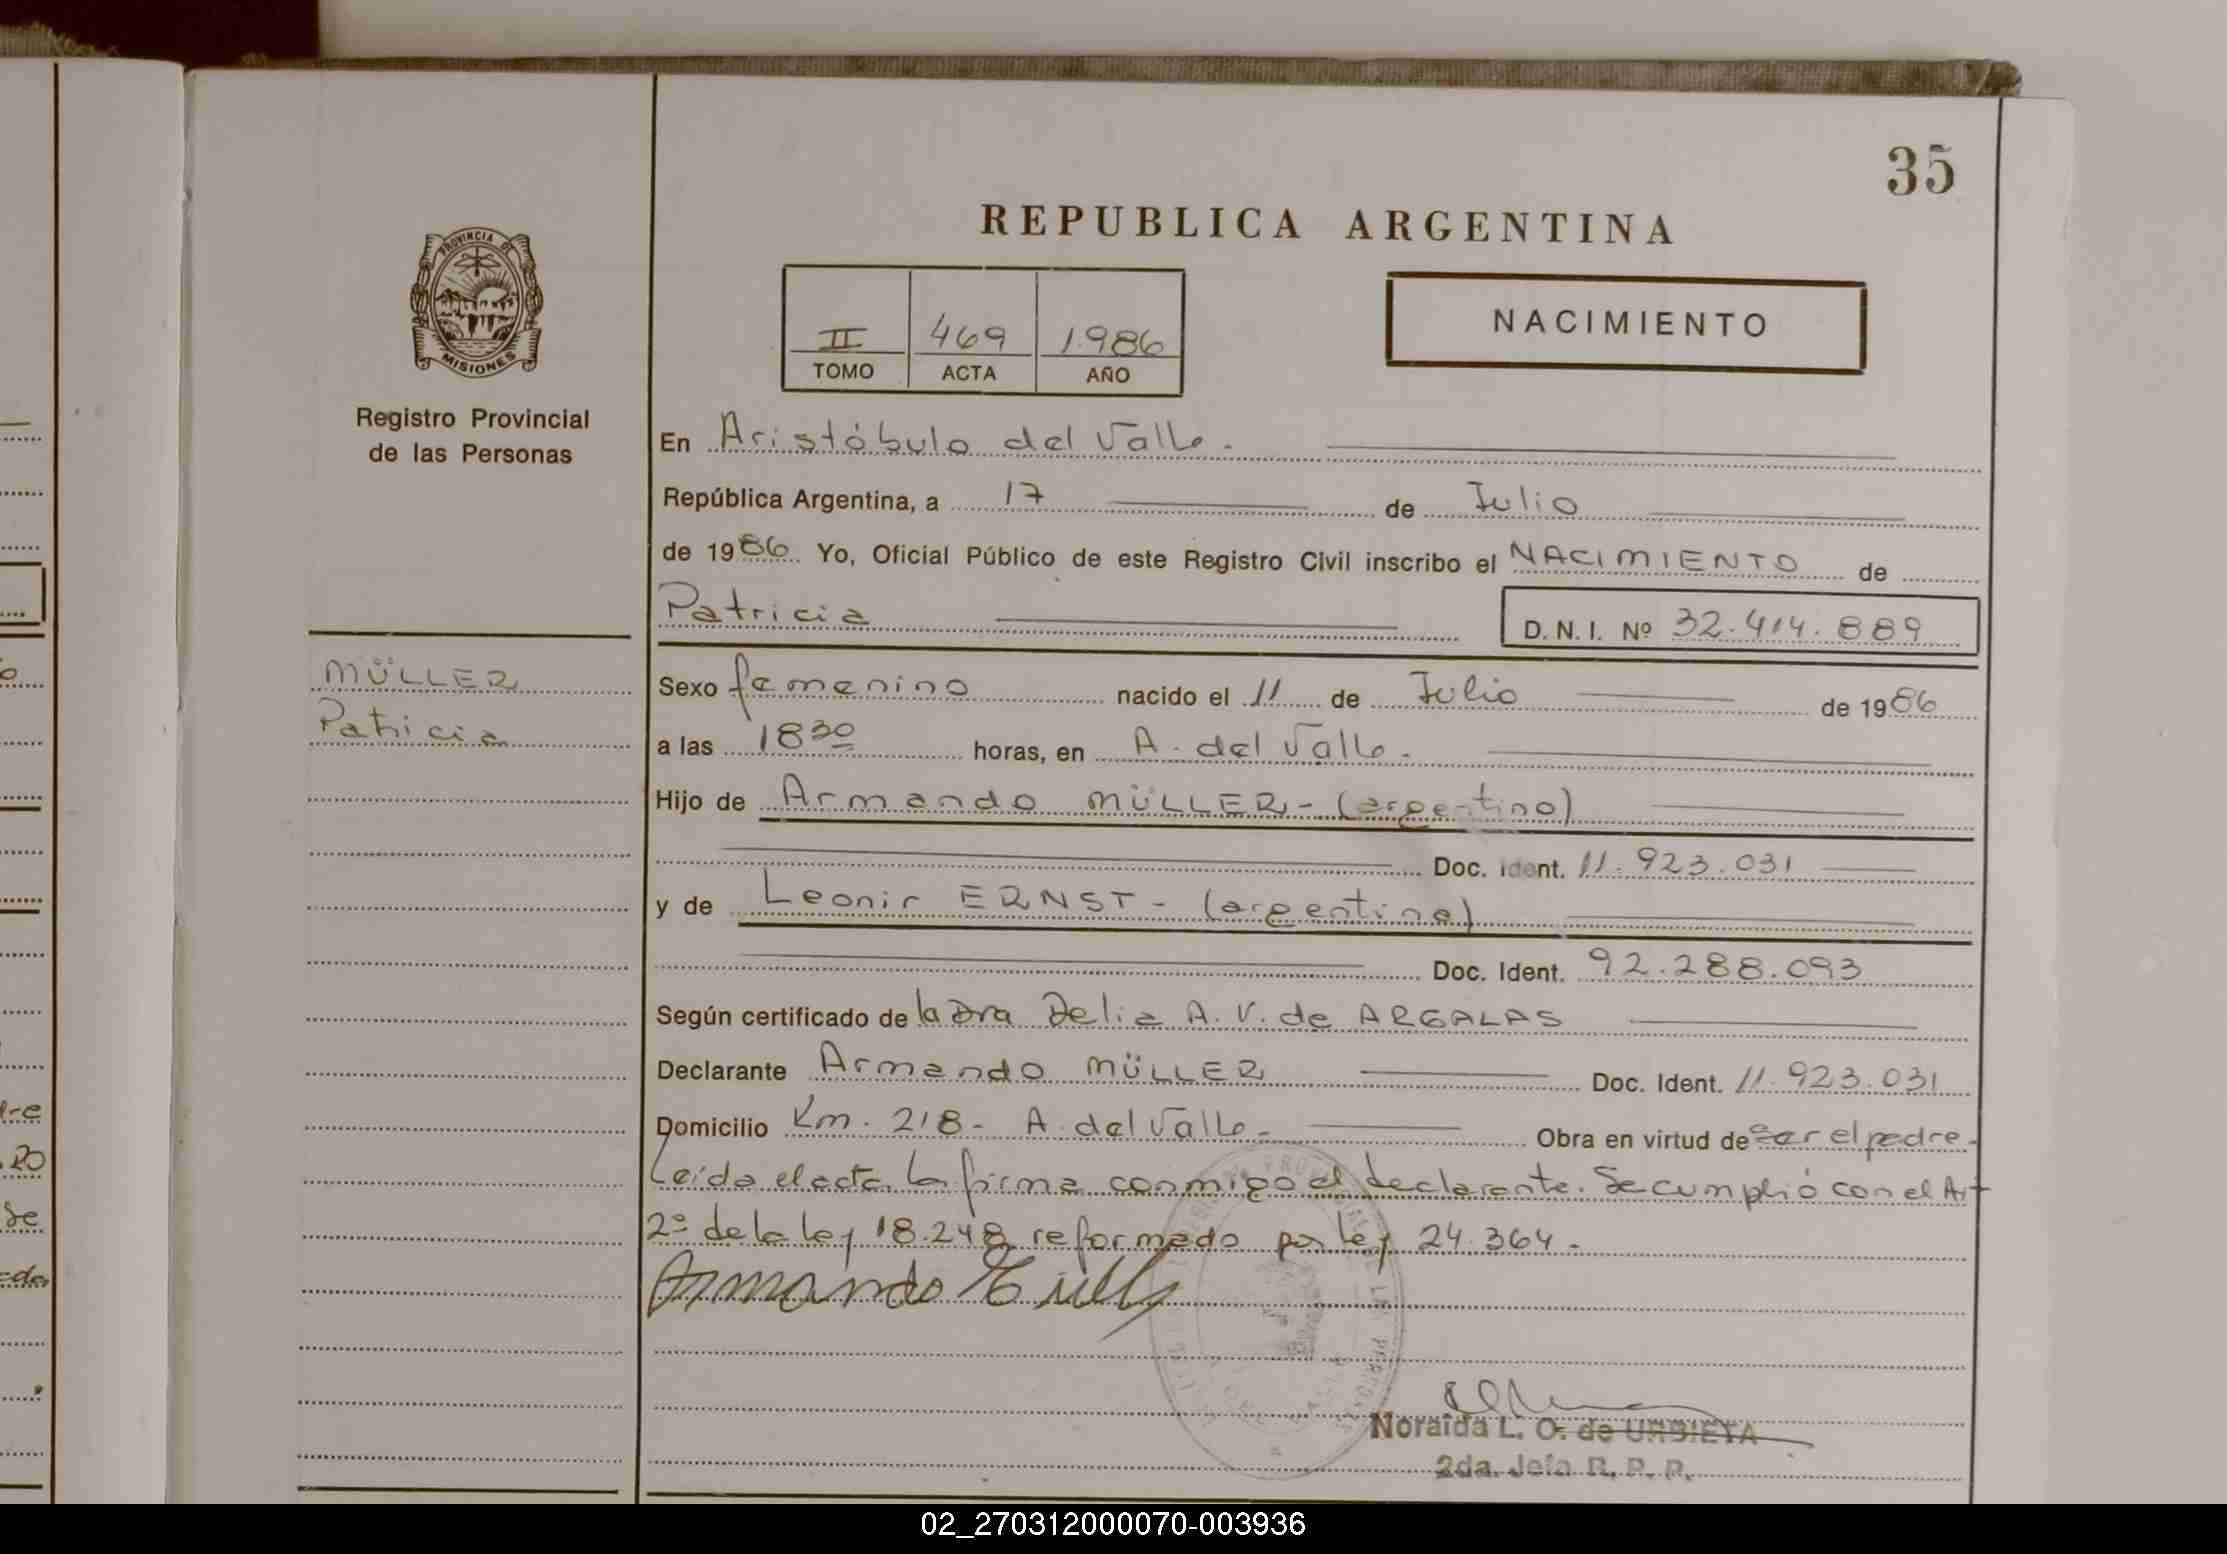 35
REPUBLICA ARGENTINA
PROVINCIA DE
MISIONES
II 469 1.986
TOMO ACTA AÑO
NACIMIENTO
Registro Provincial
de las Personas
MÜLLER
Patricia
En Aristóbulo del Valle.
República Argentina, a 17 de Julio
de 1986 Yo, Oficial Público de este Registro Civil inscribo el NACIMIENTO de
Patricia D. N. I. Nº 32.414.889
Sexo femenino nacido el 11 de Julio de 1986
a las 18 30 horas, en A. del Valle.
Hijo de Armando MÜLLER - (argentino)
Doc. Ident. 11.923.031
y de Leonir ERNST - (argentina)
Doc. Ident. 92.288.093
Según certificado de la Dra Delia A. V. de ARGALAS
Declarante Armando MÜLLER Doc. Ident. 11.923.031
Domicilio Km. 218 - A. del Valle - Obra en virtud de ser el padre.
Leída el acta la firma conmigo el declarante. Se cumplió con el Art
2º de la ley 18.248 reformado por ley 24.364.
Armando
Noraida L. O. de URBIETA
2da. Jefa R. P. P.
02_270312000070-003936